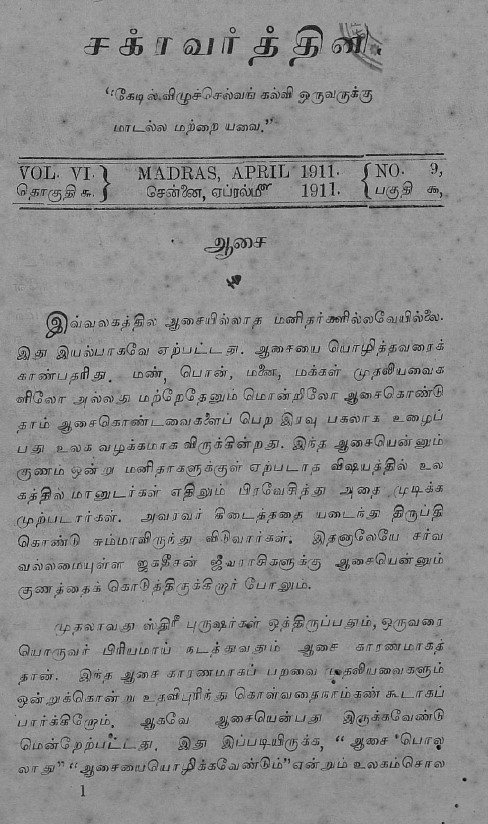 சக்ரவர்த்தினி.
“கேடில் விழுச்செல்வங் கல்வி ஒருவருக்கு
மாடல்ல மற்றை யவை.”
VOL. VI. } MADRAS, APRIL 1911. { NO. 9,
தொகுதி ௬. } சென்னை, ஏப்ரல்மீ 1911. { பகுதி ௯,
ஆசை
இவ்வலகத்தில ஆசையில்லாத மனிதர்களில்லவேயில்லை.
இது இயல்பாகவே ஏற்பட்டது. ஆசையை யொழித்தவரைக்
காண்பதரிது. மண், பொன், மனை, மக்கள் முதலியவைக
ளிலோ அல்லது மற்றேதேனும் மொன்றிலோ ஆசைகொண்டு
தாம் ஆசைகொண்டவைகளைப் பெற இரவு பகலாக உழைப்
பது உலக வழக்கமாக விருக்கின்றது. இந்த ஆசையென்னும்
குணம் ஒன்று மனிதாகளுக்குள் ஏற்படாத விஷயத்தில் உல
கத்தில் மானுடர்கள் எதிலும் பிரவேசித்து அதை முடிக்க
முற்படார்கள். அவரவர் கிடைத்ததை யடைந்து திருப்தி
கொண்டு சும்மாவிருந்து விடுவார்கள். இதனாலேயே சர்வ
வல்லமையுள்ள ஜகதீசன் ஜீவராசிகளுக்கு ஆசையென்னும்
குணத்தைக் கொடுத்திருக்கிறார் போலும்.
முதலாவது ஸ்திரீ புருஷர்கள் ஒத்திருப்பதும், ஒருவரை
யொருவர் பிரியமாய் நடத்துவதும் ஆசை காரணமாகத்
தான். இந்த ஆசை காரணமாகப் பறவை முதலியவைகளும்
ஒன்றுக்கொன்று உதவிபுரிந்து கொள்வதைநாம்கண் கூடாகப்
பார்க்கிறோம். ஆகவே ஆசையென்பது இருக்கவேண்டு
மென்றேற்பட்டது. இது இப்படியிருக்க, “ஆசை பொல
லாது” “ஆசையையொழிக்கவேண்டும்” என்றும் உலகம்சொல
1